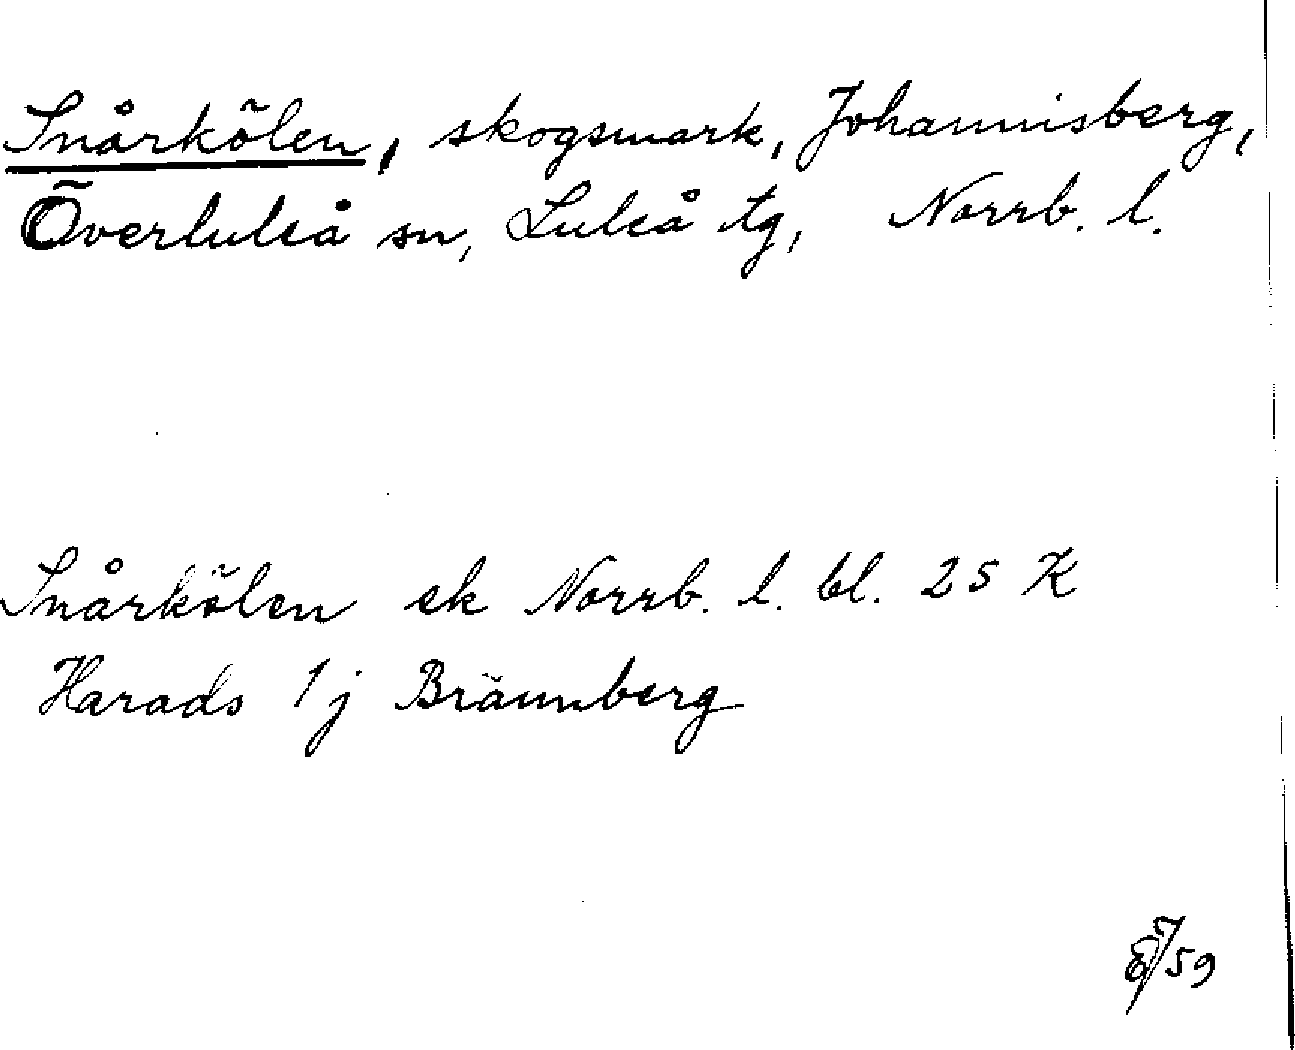 Snårkölen, skogsmark, Johannisberg,
Överluleå sn, Luleå tg, Norrb. l.
Snårkölen ek Norrb. l. bl. 25 K
Harads 1 j Brännberg
59